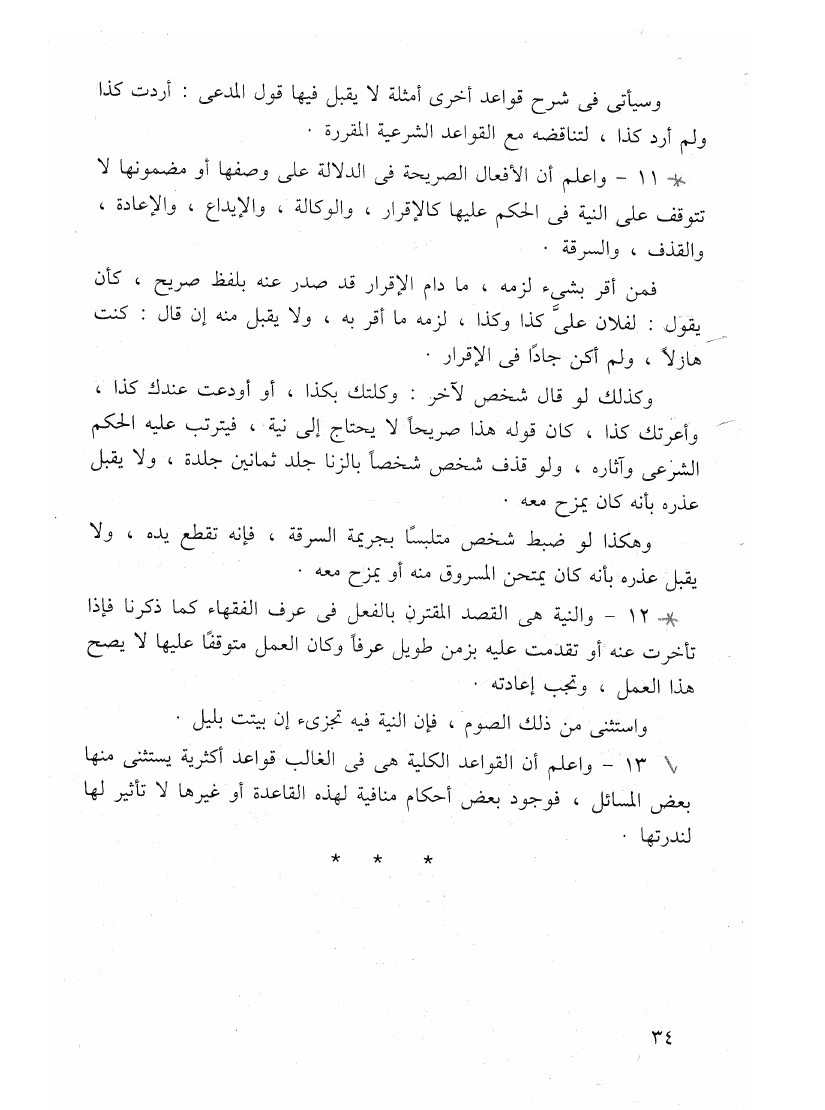 وسيأتى فى شرح قواعد أخرى أمثلة لا يقبل فيها قول المدعى : أردت كذا
ولم أرد كذا ، لتناقضه مع القواعد الشرعية المقررة .
* ١١ - واعلم أن الأفعال الصريحة فى الدلالة على وصفها أو مضمونها لا
تتوقف على النية فى الحكم عليها كالإقرار ، والوكالة ، والإيداع ، والإعادة ،
والقذف ، والسرقة .
فمن أقر بشىء لزمه ، ما دام الإقرار قد صدر عنه بلفظ صريح ، كأن
يقول : لفلان علىَّ كذا وكذا ، لزمه ما أقر به ، ولا يقبل منه إن قال : كنت
هازلاً ، ولم أكن جادًا فى الإقرار .
وكذلك لو قال شخص لآخر : وكلتك بكذا ، أو أودعت عندك كذا ،
وأعرتك كذا ، كان قوله هذا صريحاً لا يحتاج إلى نية ، فيترتب عليه الحكم
الشرعى وآثاره ، ولو قذف شخص شخصاً بالزنا جلد ثمانين جلدة ، ولا يقبل
عذره بأنه كان يمزح معه .
وهكذا لو ضبط شخص متلبسًا بجريمة السرقة ، فإنه تقطع يده ، ولا
يقبل عذره بأنه كان يمتحن المسروق منه أو يمزح معه .
* ١٢ - والنية هى القصد المقترن بالفعل فى عرف الفقهاء كما ذكرنا فإذا
تأخرت عنه أو تقدمت عليه بزمن طويل عرفاً وكان العمل متوقفًا عليها لا يصح
هذا العمل ، وتجب إعادته .
واستثنى من ذلك الصوم ، فإن النية فيه تجزىء إن بيتت بليل .
١٣ - واعلم أن القواعد الكلية هى فى الغالب قواعد أكثرية يستثنى منها
بعض المسائل ، فوجود بعض أحكام منافية لهذه القاعدة أو غيرها لا تأثير لها
لندرتها .
* * *
٣٤